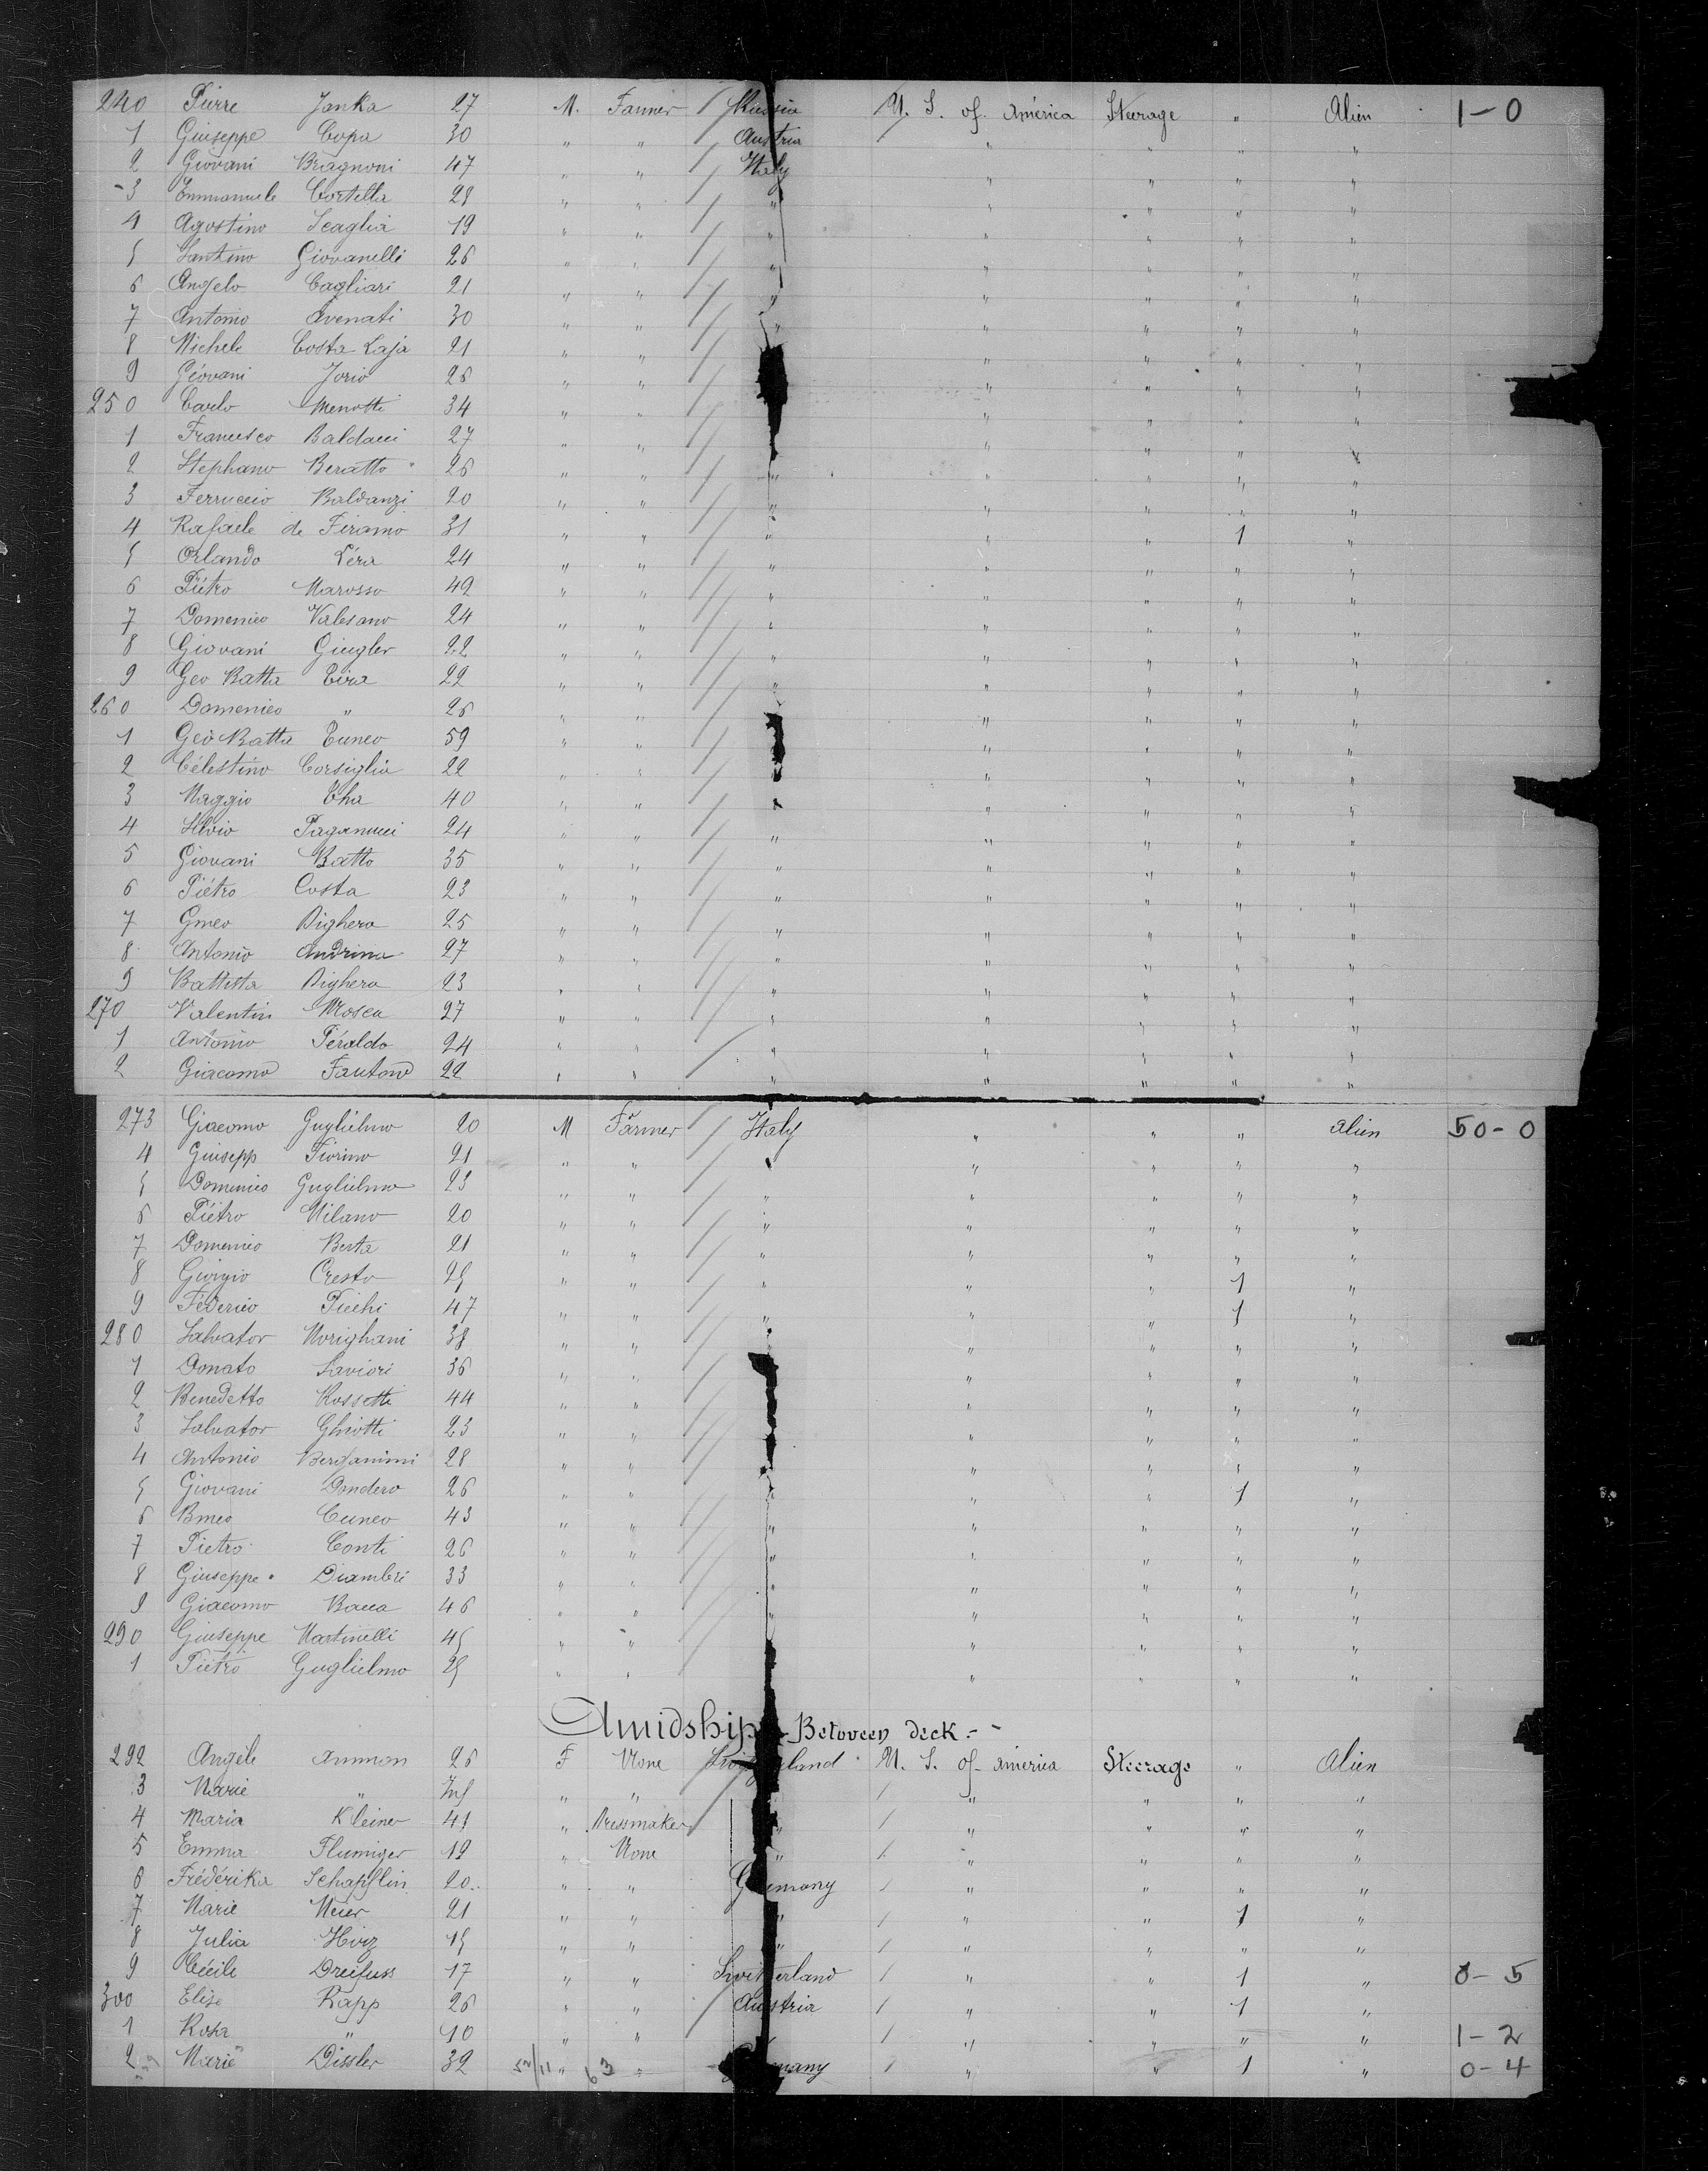 240 Pierre Janka 27 M. Farmer Russia U. S. of America Steerage " Alien 1-0
1 Giuseppe Copa 30 " " Austria " " " "
2 Giovani Bragnoni 47 " " Italy " " " "
3 Emmanuele Cortella 28 " " " " " " "
4 Agostino Scaglia 19 " " " " " " "
5 Santino Giovanelli 26 " " " " " " "
6 Angelo Cagliari 21 " " " " " " "
7 Antonio Avenati 30 " " " " " " "
8 Michele Costa Laja 21 " " " " " "
9 Giovani Jorio 26 " " " " " "
250 Carlo Menotti 34 " " " " " "
1 Francesco Baldacci 27 " " " " " "
2 Stephano Beratto 26 " " " " " " "
3 Ferruccio Baldanzi 20 " " " " " " "
4 Rafaele de Firamo 31 " " " " " 1 "
5 Orlando Léra 24 " " " " " " "
6 Piétro Marosso 49 " " " " " " "
7 Domenico Valesano 24 " " " " " " "
8 Giovani Giugler 22 " " " " " " "
9 Geo Batta Eira 22 " " " " " " "
260 Domenico " 26 " " " " " "
1 Geo Batta Cuneo 59 " " " " " "
2 Célestino Corsiglia 22 " " " " " "
3 Maggio Cha 40 " " " " " "
4 Silvio Paganucci 24 " " " " " " "
5 Giovani Batto 35 " " " " " " "
6 Piétro Costa 23 " " " " " " "
7 Gmeo Bighero 25 " " " " " " "
8 Antonio Andrina 27 " " " " " " "
9 Battista Bighero 23 " " " " " " "
270 Valentin Mosca 27 " " " " " " "
1 Antonio Péraldo 24 " " " " " " "
2 Giacomo Fautono 22 " " " " " " "
273 Giacomo Guglielmo 20 M Farmer Italy " " " alien 50-0
4 Giusepp Fiorino 21 " " " " " " "
5 Domenico Guglielmo 23 " " " " " " "
6 Piétro Milano 20 " " " " " " "
7 Domenico Berta 21 " " " " " " "
8 Giorgio Cresto 25 " " " " " 1 "
9 Féderico Picchi 47 " " " " " 1 "
280 Salvator Morighani 38 " " " " " " "
1 Donato Saviori 36 " " " " " "
2 Benedetto Rossetti 44 " " " " " "
3 Salvator Ghiotti 23 " " " " " "
4 Antonio Bergamini 28 " " " " " "
5 Giovani Dondero 26 " " " " " 1 "
6 Bmeo Cuneo 43 " " " " " " "
7 Pietro Conti 26 " " " " " " "
8 Giuseppe Diambri 33 " " " " " " "
9 Giacomo Bacca 46 " " " " " " "
290 Giuseppe Martinelli 45 " " " " " "
1 Piétro Guglielmo 25 " " " " " "
Amidship Between deck.-
292 Angéle Ammon 26 F None Switzerland U. S. of America Steerage " Alien
3 Marie " Inf " " " " " "
4 Maria Kleiner 41 " Dressmaker " " " " "
5 Emma Flumiger 19 " None " " " " "
6 Frédérika Schapflin 20 " " Germany " " " "
7 Marie Meier 21 " " " " " 1 "
8 Julia Hirz 15 " " " " " " "
9 Cécile Dreifuss 17 " " Switzerland " " 1 " 0-5
300 Elise Rapp 26 " " Austria " " 1 "
1 Rosa " 10 " " " " " " 1-2
2 Marie Dissler 32 52/11 " 63 " Germany " " 1 " 0-4